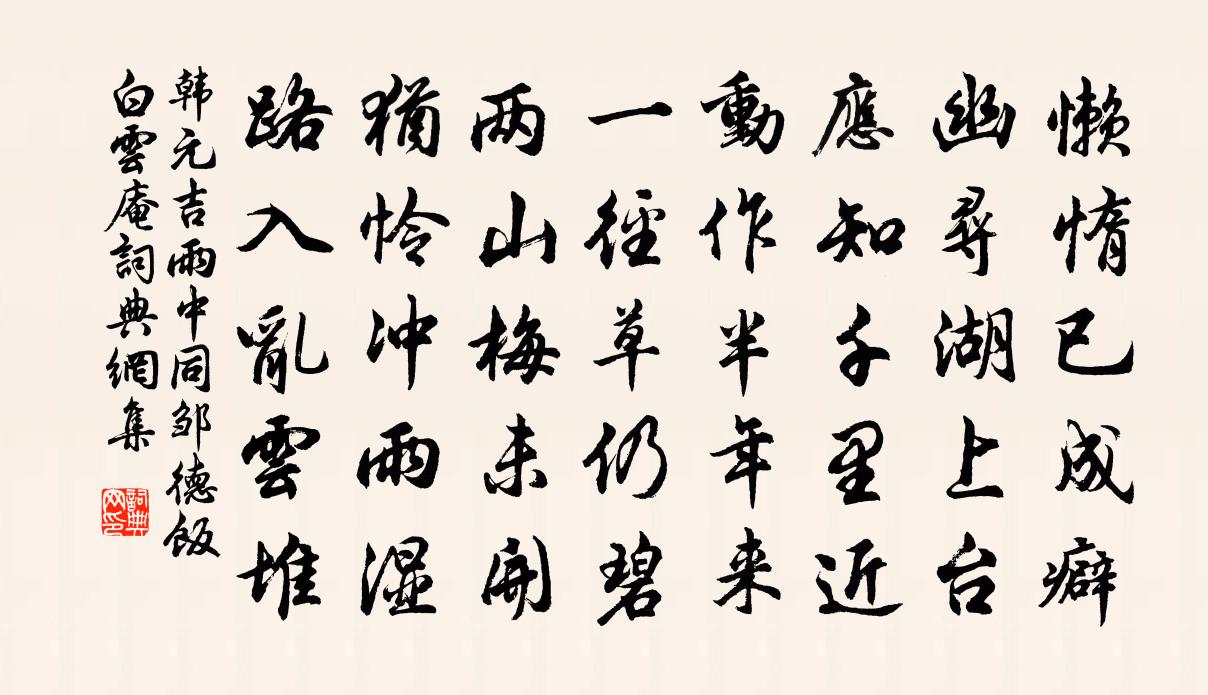 懒惰已成癖
幽尋湖上台
應知千里近
動作半年来
一徑草仍碧
两山梅未開
猶怜冲雨湿
路入亂雲堆
韩元吉雨中同邹德飯
白雲庵詞典網集
詞典
网印